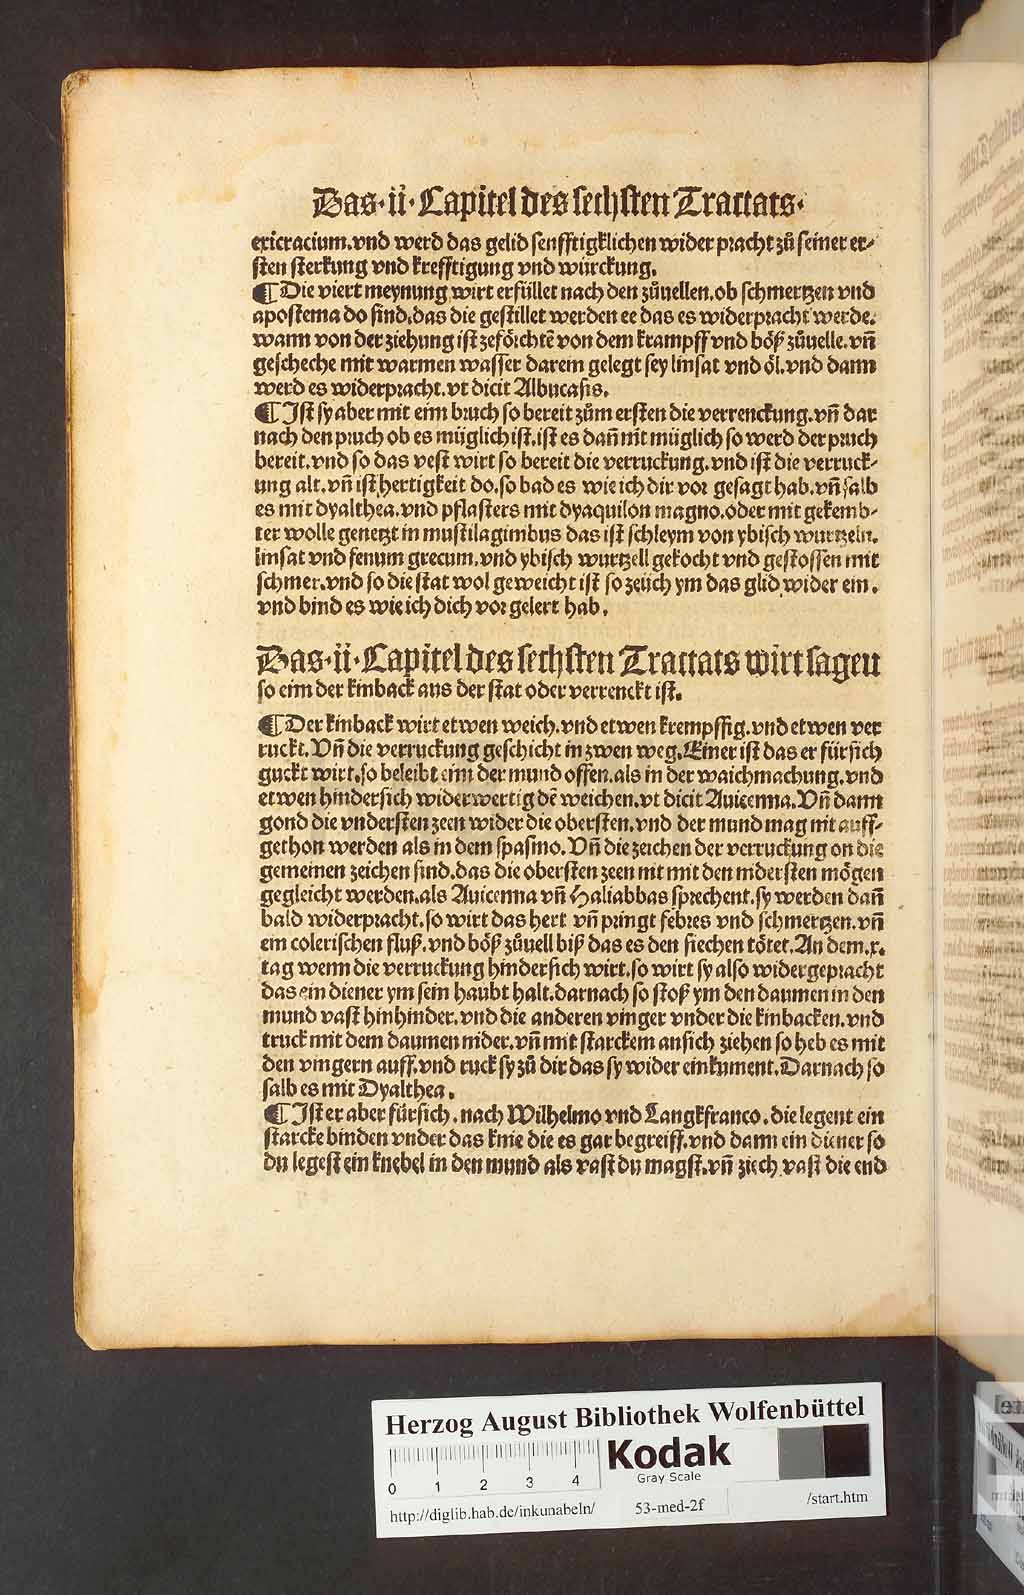 Das·ii·Capitel des sechsten Tractats·
exicracium.vnd werd das gelid senfftigklichen wider pracht zů seiner er⸗
sten sterkung vnd krefftigung vnd würckung.
¶Die viert meynung wirt erfüllet nach den zůuellen.ob schmertzen vnd
apostema do sind.das die gestillet werden ee das es widerpracht werde.
wann von der ziehung ist zeförchtē von dem krampff vnd böß zůuelle.vñ
gescheche mit warmen wasser darein gelegt sey linsat vnd öl.vnd dann
werd es widerpracht.vt dicit Albucasis.
¶Ist sy aber mit eim bruch so bereit zům ersten die verrenckung.vñ dar
nach den pruch ob es müglich ist.ist es dañ nit müglich so werd der pruch
bereit.vnd so das vest wirt so bereit die verruckung.vnd ist die verruck⸗
ung alt.vñ ist hertigkeit do.so bad es wie ich dir vor gesagt hab.vñ salb
es mit dyalthea.vnd pflasters mit dyaquilon magno.oder mit gekemb⸗
ter wolle genetzt in mustilaginibus das ist schleym von ybisch wurtzeln.
linsat vnd fenum grecum.vnd ybisch wurtzell gekocht vnd gestossen mit
schmer.vnd so die stat wol geweicht ist so zeüch ym das glid wider ein.
vnd bind es wie ich dich vor gelert hab.
Das·ii·Capitel des sechsten Tractats wirt sagen
so eim der kinback aus der stat oder verrenckt ist.
¶Der kinback wirt etwen weich.vnd etwen krempffig.vnd etwen ver
ruckt.Vñ die verruckung geschicht in zwen weg.Einer ist das er fürsich
guckt wirt.so beleibt eim der mund offen.als in der waichmachung.vnd
etwen hindersich widerwertig dē weichen.vt dicit Auicenna.Vñ dann
gond die vndersten zeen wider die obersten.vnd der mund mag nit auff⸗
gethon werden als in dem spasmo.Vñ die zeichen der verruckung on die
gemeinen zeichen sind.das die obersten zeen nit mit den nidersten mögen
gegleicht werden.als Auicenna vñ Haliabbas sprechent.sy werden dañ
bald widerpracht.so wirt das hert vñ pringt febres vnd schmertzen.vñ
ein colerischen fluß.vnd böß zůuell biß das es den siechen tötet.An dem.x.
tag wenn die verruckung hindersich wirt.so wirt sy also widergepracht
das ein diener ym sein haubt halt.darnach so stoß ym den daumen in den
mund vast hinhinder.vnd die anderen vinger vnder die kinbacken.vnd
truck mit dem daumen nider.vñ mit starckem ansich ziehen so heb es mit
den vingern auff.vnd ruck sy zů dir das sy wider einkument.Darnach so
salb es mit Dyalthea.
¶Ist er aber fürsich.nach Wilhelmo vnd Langkfranco.die legent ein
starcke binden vnder das knie die es gar begreiff.vnd dann ein diener so
du legest ein knebel in den mund als vast du magst.vñ ziech vast die end
Herzog August Bibliothek Wolfenbüttel
Kodak
Gray Scale
0 1 2 3 4
http://diglib.hab.de/inkunabeln/ 53-med-2f /start.htm